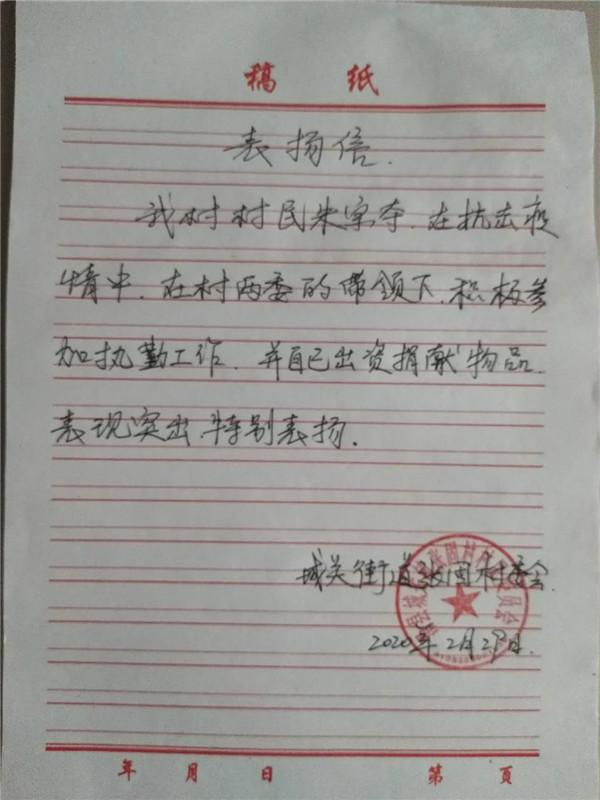 稿 纸
表扬信.
我村村民朱宗夺.在抗击疫
情中.在村两委的带领下.积极参
加执勤工作.并自已出资捐献物品.
表现突出.特别表扬.
城关街道张围村委会.
2020年2月29日.
年 月 日 第 页